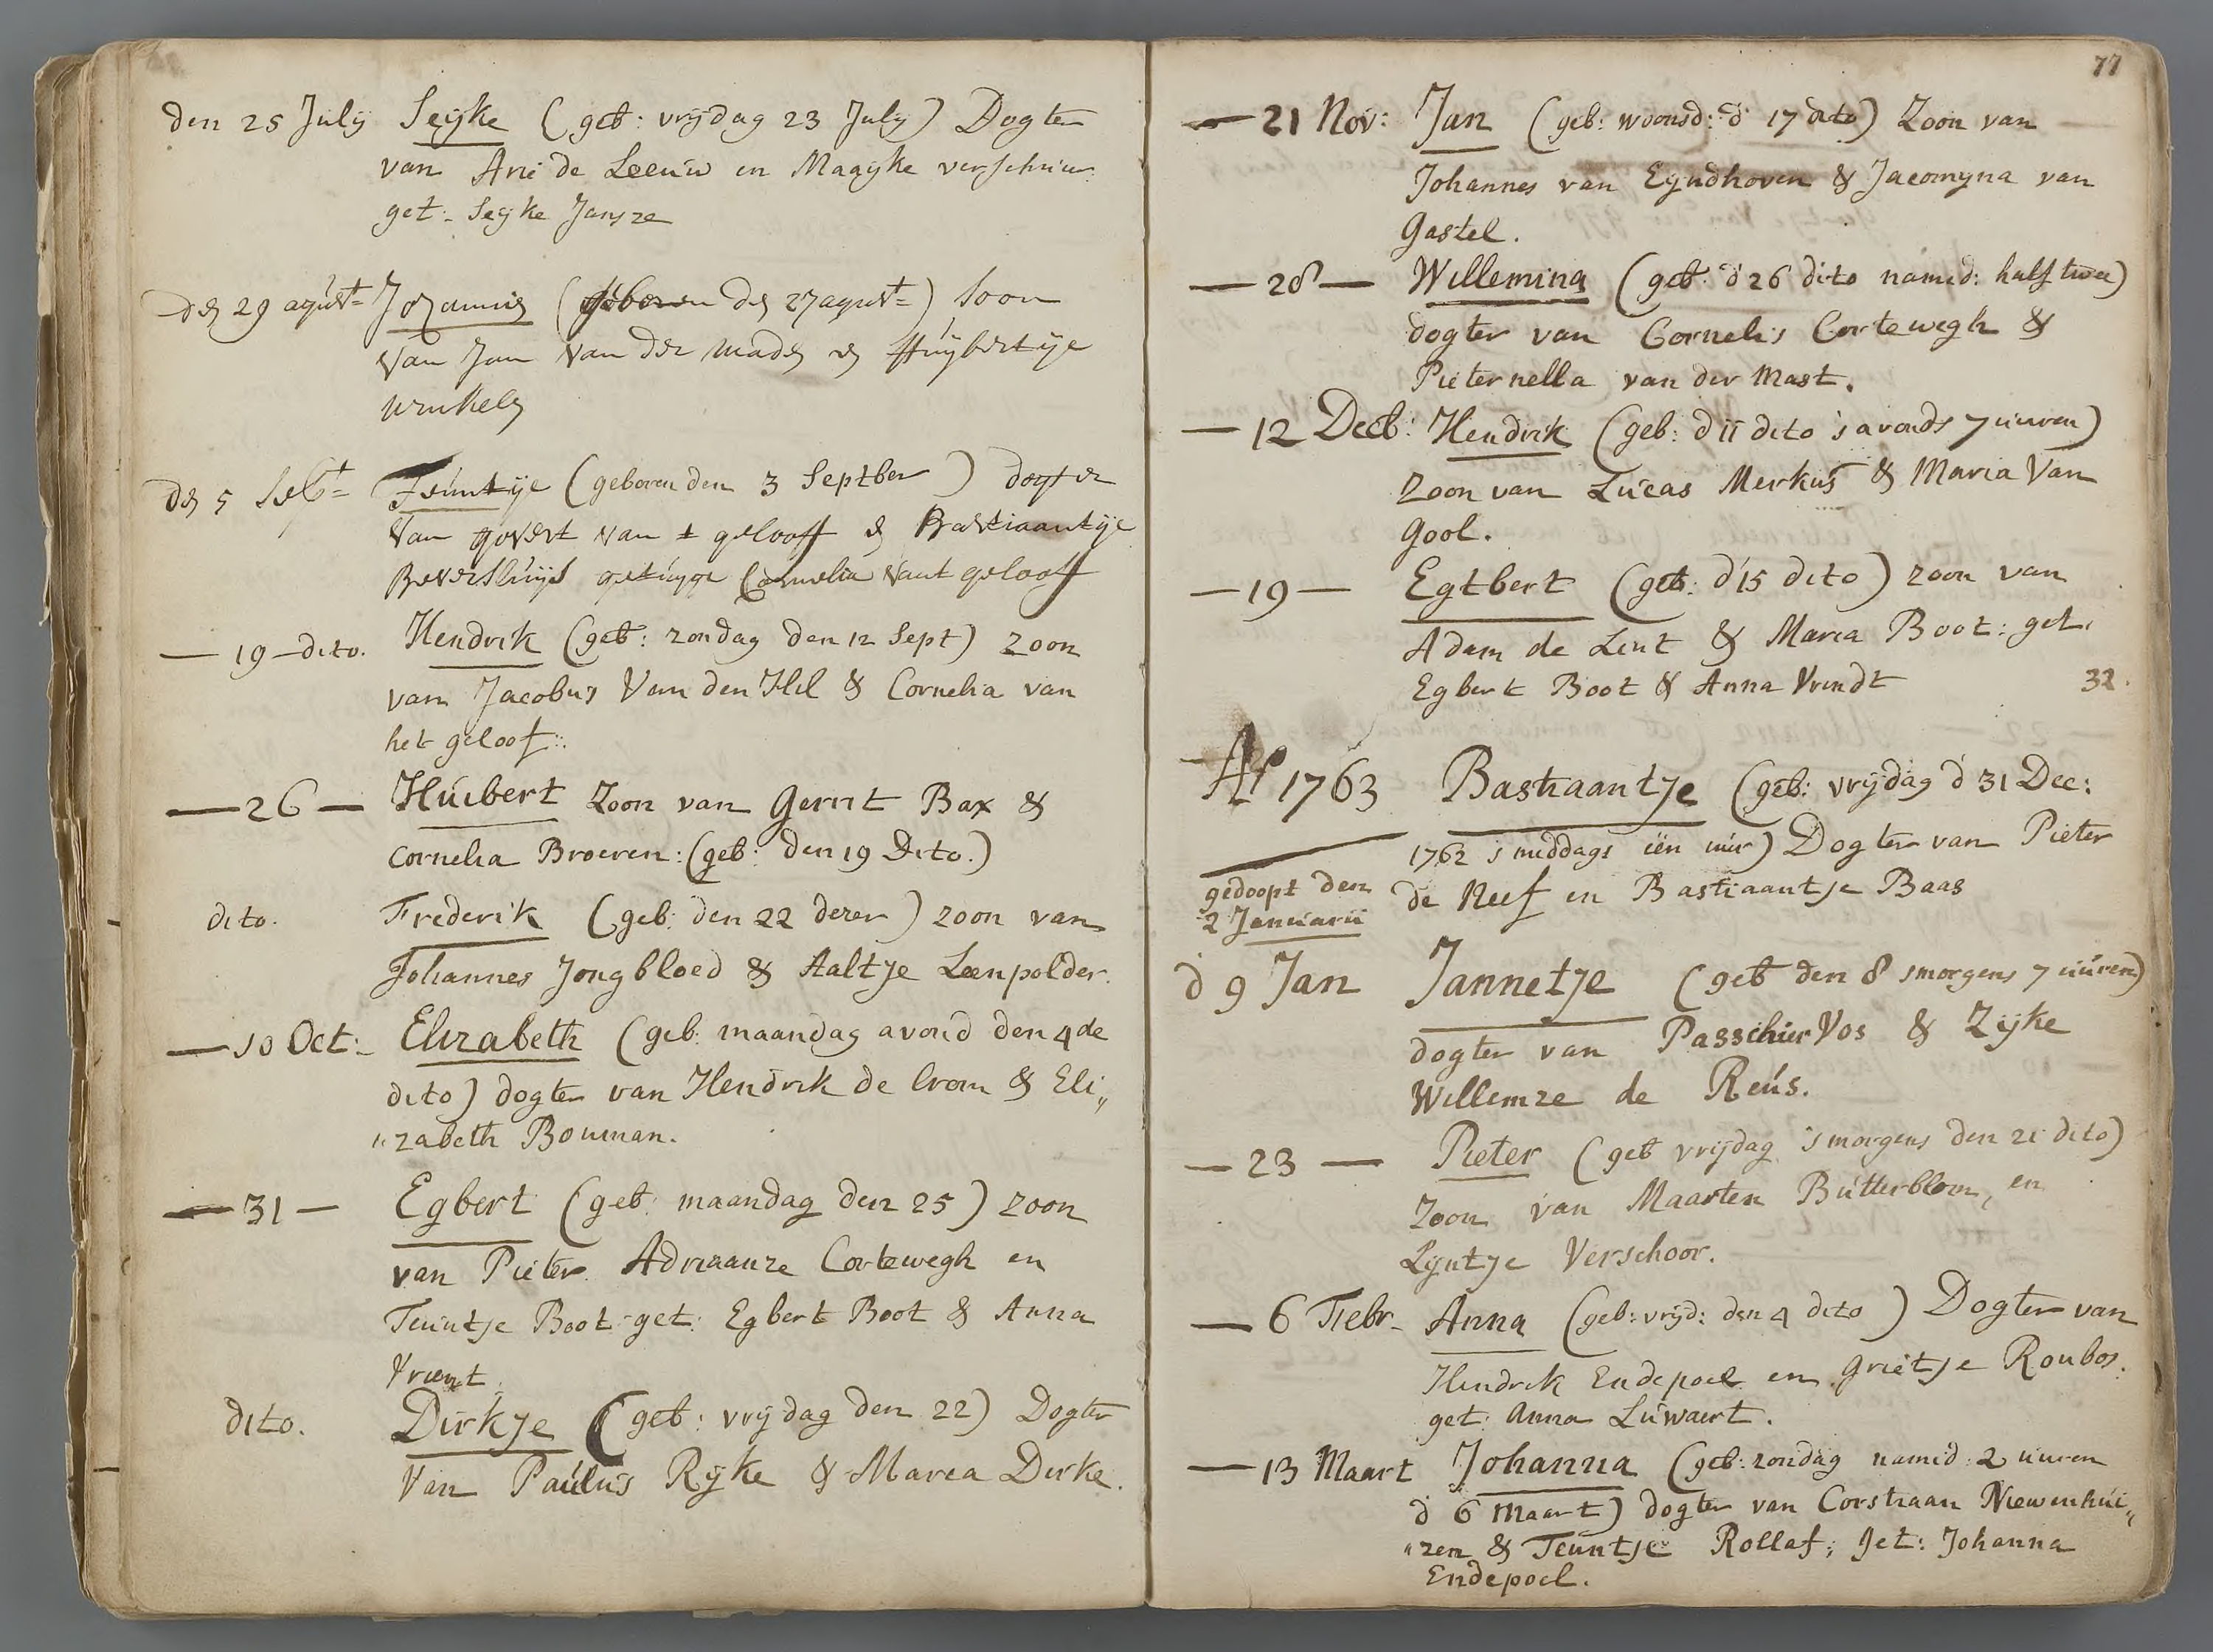 den 25 July Seijke (geb: vrijdag 23 July) Dogter
van Arie de Leeuw en Maayke verschuur
get: Seyke Jansze
den 29 agust= Johannis (geboren den 27 agust=) soon
van Jan van der maden en Huijbertije
winkelen
den 5 Sept= Teuntije (geboren den 3 Septber) dogter
van govert van t gelooff en Bastiaantije
Beversluijs getuijge Cornelia vant gelooff
— 19 — dito. Hendrik (geb: zondag den 12 Sept) zoon
van Jacobus Van den Hil & Cornelia van
het geloof:.
— 26 — Huibert Zoon van Gerrit Bax &
Cornelia Broeren: (geb: den 19 Dito.)
dito. Frederik (geb: den 22 dezer) zoon van
Johannes Jongbloed & Aaltje Leenpolder.
— 10 Oct: Elizabeth (geb: maandag avond den 4de
dito) dogter van Hendrik de Crom & Eli„
„zabeth Bouman.
— 31 — Egbert (geb: maandag den 25) zoon
van Pieter Adriaanze Cortewegh en
Teuntje Boot get: Egbert Boot & Anna
Vrient
dito. Dirkje (geb: vrijdag den 22) Dogter
Van Paulus Rijke & Maria Dirke.
77
— 21 Nov: Jan (geb: woonsd: d 17 dito) Zoon van
Johannes van Eyndhoven & Jacomyna van
Gastel.
— 28 — Willemina (geb: d 26 dito namid: half twee)
dogter van Cornelis Cortewegh &
Pieternella van der Mast.
— 12 Decb: Hendrik (geb: d 11 dito 's avonds 7 uuren)
Zoon van Lucas Merkus & Maria Van
Gool.
— 19 — Egtbert (geb: d 15 dito) zoon van
Adam de Lint & Maria Boot: get.
Egbert Boot & Anna Vrindt 32.
Ao 1763 Bastiaantje (geb: vrijdag d 31 Dec:
1762 s middags een uur) Dogter van Pieter
gedoopt den de Neef en Bastiaantje Baas
2 Januarii
d 9 Jan Jannetje (geb den 8 smorgens 7 uuren)
dogter van Passchier Vos & Zijke
Willemze de Reus.
— 23 — Pieter (geb vrijdag 's morgens den 21 dito)
Zoon van Maarten Butterblom, en
Lijntje Verschoor.
— 6 Febr. Anna (geb: vrijd: den 4 dito) Dogter van
Hendrik Endepoel en Grietje Roubos.
get: Anna Luwaert.
— 13 Maart Johanna (geb: zondag namid: 2 uuren
d 6 Maart) dogter van Corstiaan Niewenhui„
„zen & Teuntje Rollaf; get: Johanna
Endepoel.